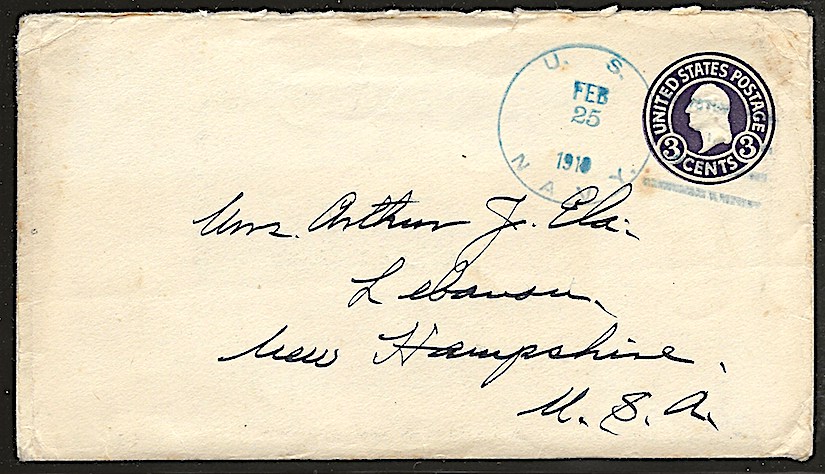 U. S.
FEB
25
NAVY
UNITED STATES POSTAGE
3 CENTS 3
Mrs. Arthur J. Ela.
Lebanon,
New Hampshire,
U. S. A.